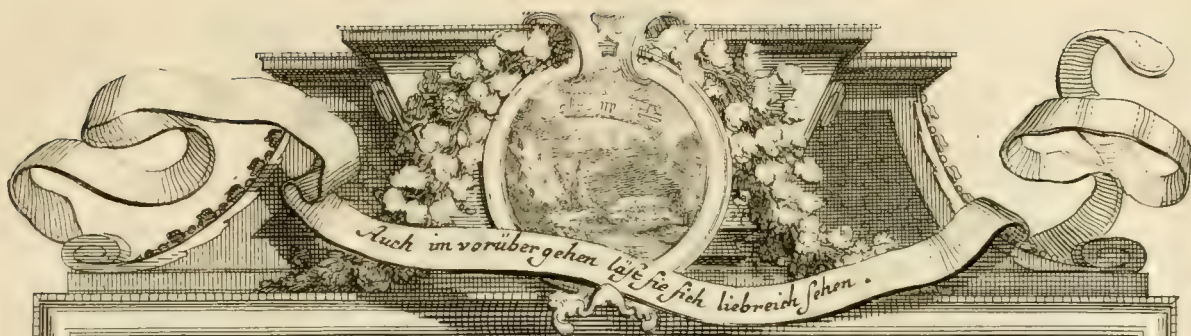 Auch im vorüber gehen läſt ſie ſich liebreich ſehen.